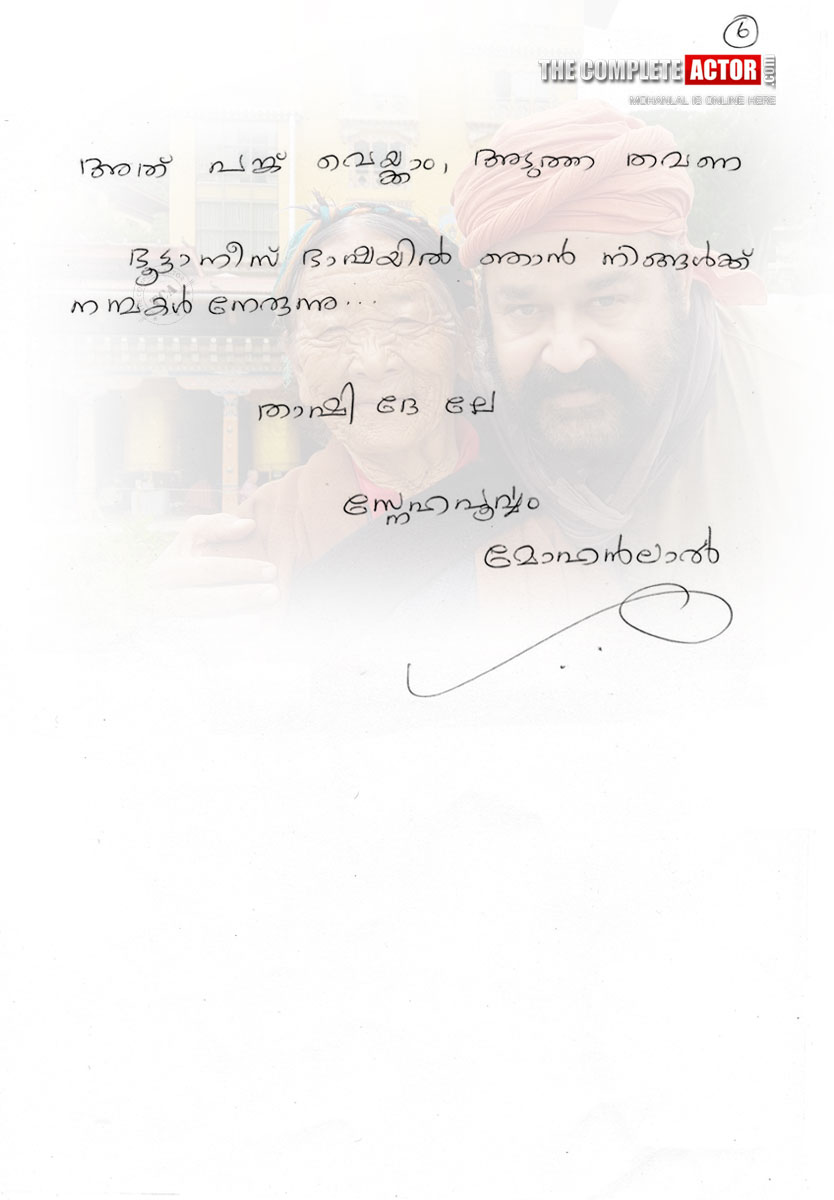 6
THE COMPLETE ACTOR .COM
MOHANLAL IS ONLINE HERE
അത് പങ്ക് വെയ്ക്കാം, അടുത്ത തവണ
ഭൂട്ടാനീസ് ഭാഷയിൽ ഞാൻ നിങ്ങൾക്ക്
നന്മകൾ നേരുന്നു...
താഷി ദേ ലേ
സ്നേഹപൂർവ്വം
മോഹൻലാൽ